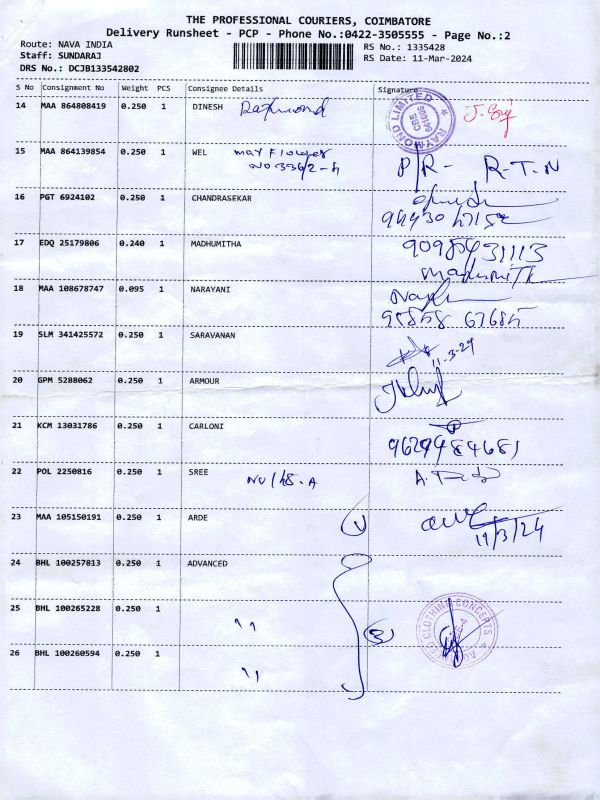 THE PROFESSIONAL COURIERS, COIMBATORE
Delivery Runsheet - PCP - Phone No.:0422-3505555 - Page No.:2
Route: NAVA INDIA
RS No.: 1335428
Staff: SUNDARAJ
RS Date: 11-Mar-2024
DRS No.: DCJB133542802
S No Consignment No Weight PCS Consignee Details Signature
14 MAA 864808419 0.250 1 DINESH Raymond
RAYMOND LIMITED
CBE
15 MAA 864139854 0.250 1 WEL may Flower P/R- R-T-N
16 PGT 6924102 0.250 1 CHANDRASEKAR
17 EDQ 25179806 0.240 1 MADHUMITHA
18 MAA 108678747 0.095 1 NARAYANI
19 SLM 341425572 0.250 1 SARAVANAN
11-3-24
20 GPM 5288062 0.250 1 ARMOUR
21 KCM 13031786 0.250 1 CARLONI
9629484681
22 POL 2250816 0.250 1 SREE
23 MAA 105150191 0.250 1 ARDE
11/3/24
24 BHL 100257813 0.250 1 ADVANCED
25 BHL 100265228 0.250 1 "
CLOTHING CONCEPTS
26 BHL 100260594 0.250 1 "